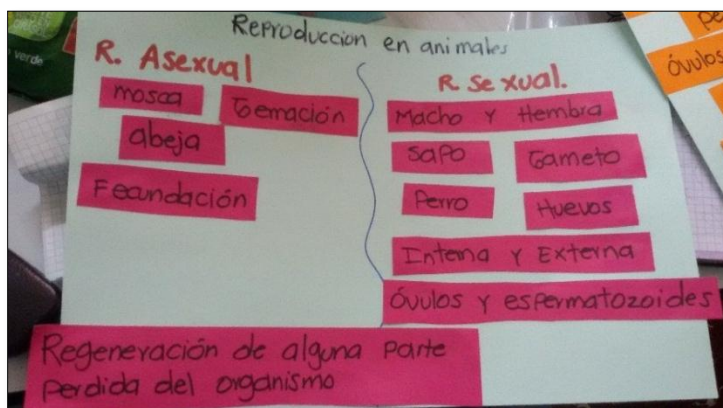 verde
Reproduccion en animales
R. Asexual
mosca
Gemación
abeja
Fecundación
R. Sexual.
Macho y Hembra
Sapo
Gameto
Perro
Huevos
Interna y Externa
Óvulos y espermatozoides
Regeneración de alguna parte
perdida del organismo
Óvulos